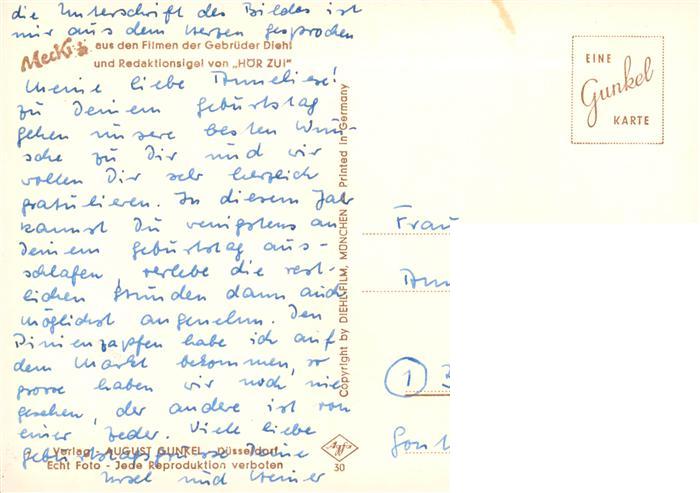 die Unterschrift des Bildes ist
mir aus dem Herzen gesprochen
Mecki aus den Filmen der Gebrüder Diehl
und Redaktionsigel von „HÖR ZU!"
Meine liebe Anneliese!
Zu Deinem Geburtstag
gehen unsere besten Wün-
sche zu Dir und wir
wollen Dir sehr herzlich
gratulieren. In diesem Jahr
kannst Du wenigstens an
Deinem Geburtstag aus-
schlafen, verlebe die rest-
lichen Stunden dann auch
möglichst angenehm. Den
Pinienzapfen habe ich auf
dem Markt bekommen, so
grosse haben wir noch nie
gesehen, der andere ist von
einer Zeder. Viele liebe
Geburtstagsgrüsse Deine
Ursel und Werner
Verlag - AUGUST GUNKEL - Düsseldorf
Echt Foto - Jede Reproduktion verboten
Copyright by DIEHL-FILM, MÜNCHEN Printed in Germany
Agfa
30
EINE
Gunkel
KARTE
Frau
Ann
1 B